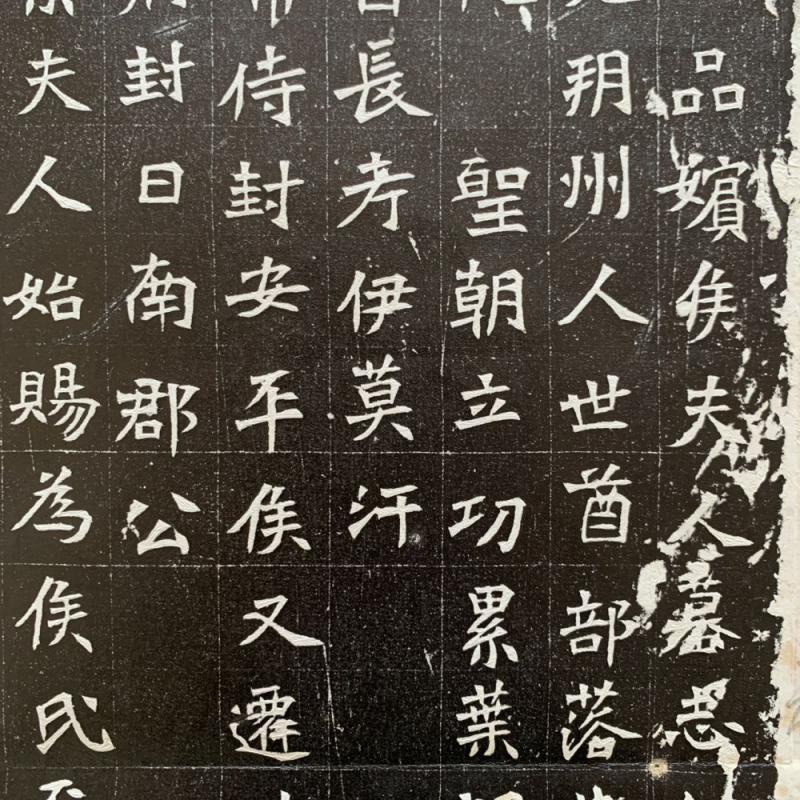 品嬪侯夫人墓志
朔州人世酋部落
聖朝立功累葉
長考伊莫汗
侍封安平侯又遷
封日南郡公
夫人始賜為侯氏